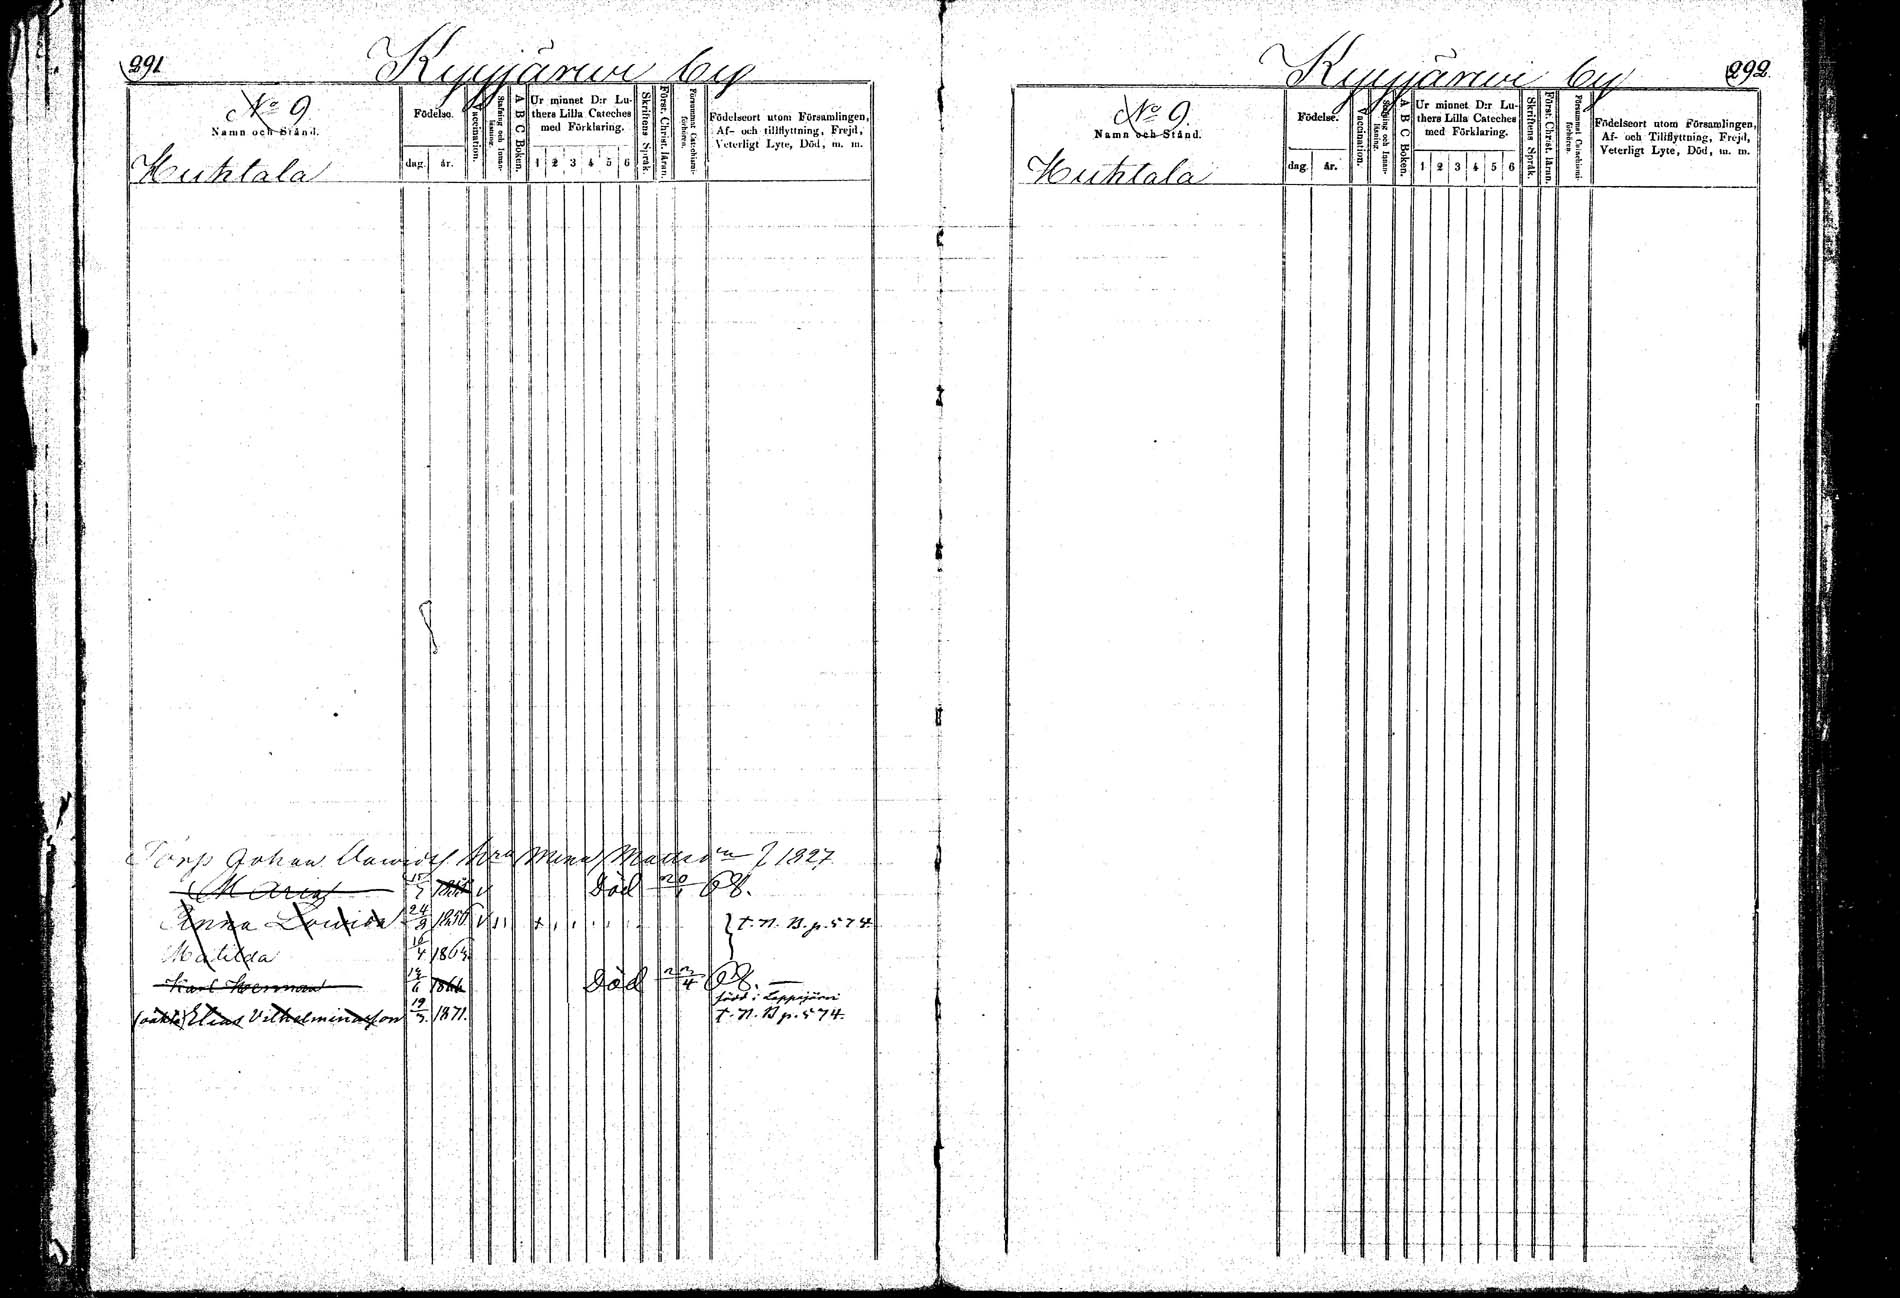 291
Kyyjärwi by
No 9
Namn och Stånd.
Huhtala
Födelse.
dag. år.
Vaccination.
Stafning och Innanläsning.
A B C Boken.
Ur minnet D:r Luthers Lilla Cateches med Förklaring.
1 2 3 4 5 6
Skriftens Språk.
Först. Christ. läran.
Försummat Catechismiförhören.
Födelseort utom Församlingen,
Af- och tillflyttning, Frejd,
Veterligt Lyte, Död, m. m.
Torp Johan Mina 1827
Maria 15/7 v Död 20/1 68.
Anna Lovisa 24/8 v } t. N. B. p. 574.
Matilda 4
Karl Herman 6 1866 Död 22/4 68. —
född i Leppäjärvi
(oäkta) Elias Vilhelminasson 19/3. 1871. t. N. B p. 574.
292.
Kyyjärwi by
No 9.
Namn och Stånd.
Huhtala
Födelse.
dag år.
Vaccination.
Stafning och Innanläsning.
A B C Boken.
Ur minnet D:r Luthers Lilla Cateches med Förklaring.
1 2 3 4 5 6
Skriftens Språk.
Först. Christ. läran.
Försummat Catechismiförhören.
Födelseort utom Församlingen,
Af- och Tillflyttning, Frejd,
Veterligt Lyte, Död, m. m.